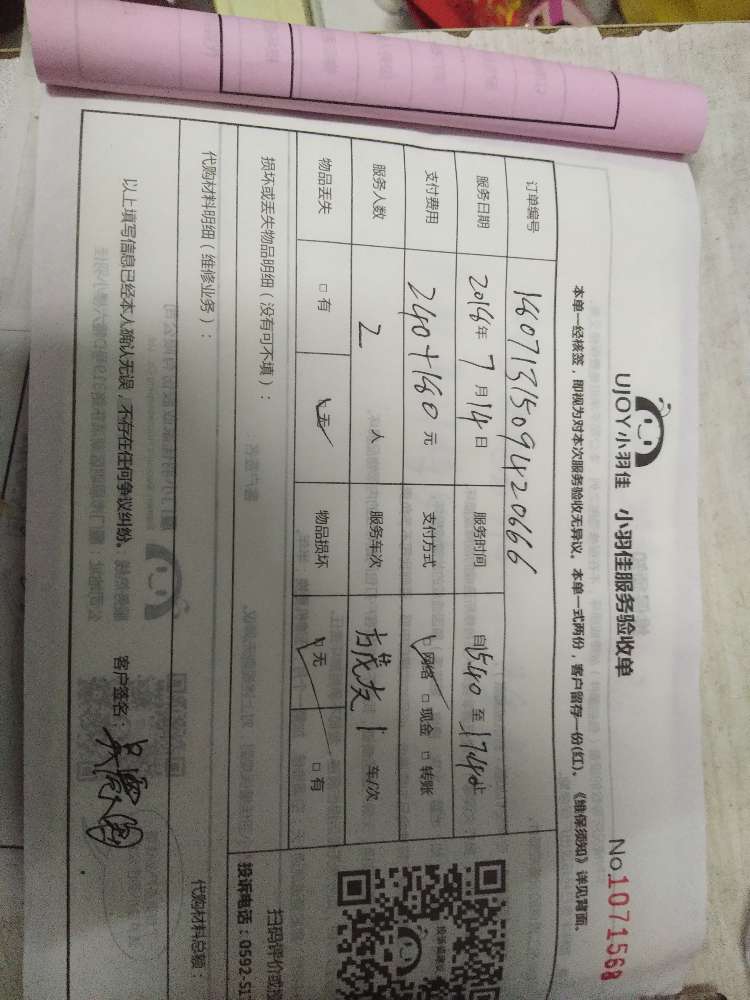 UJOY小羽佳 小羽佳服务验收单
No.1071568
本单一经核签，即视为对本次服务验收无异议。本单一式两份，客户留存一份(红)。《维保须知》详见背面。
订单编号 1607131509420666
服务日期 2016年7月14日 服务时间 自1540至1740止
支付费用 240+160元 支付方式 ☑网络 □现金 □转账
服务人数 2人 服务车次 1车/次
物品丢失 □有 ☑无 物品损坏 ☑无 □有
损坏或丢失物品明细（没有可不填）：
扫码评价或
投诉电话：0592-51
投诉或建议
代购材料明细（维修业务）：
代购材料总额：
以上填写信息已经本人确认无误，不存在任何争议纠纷。 客户签名：